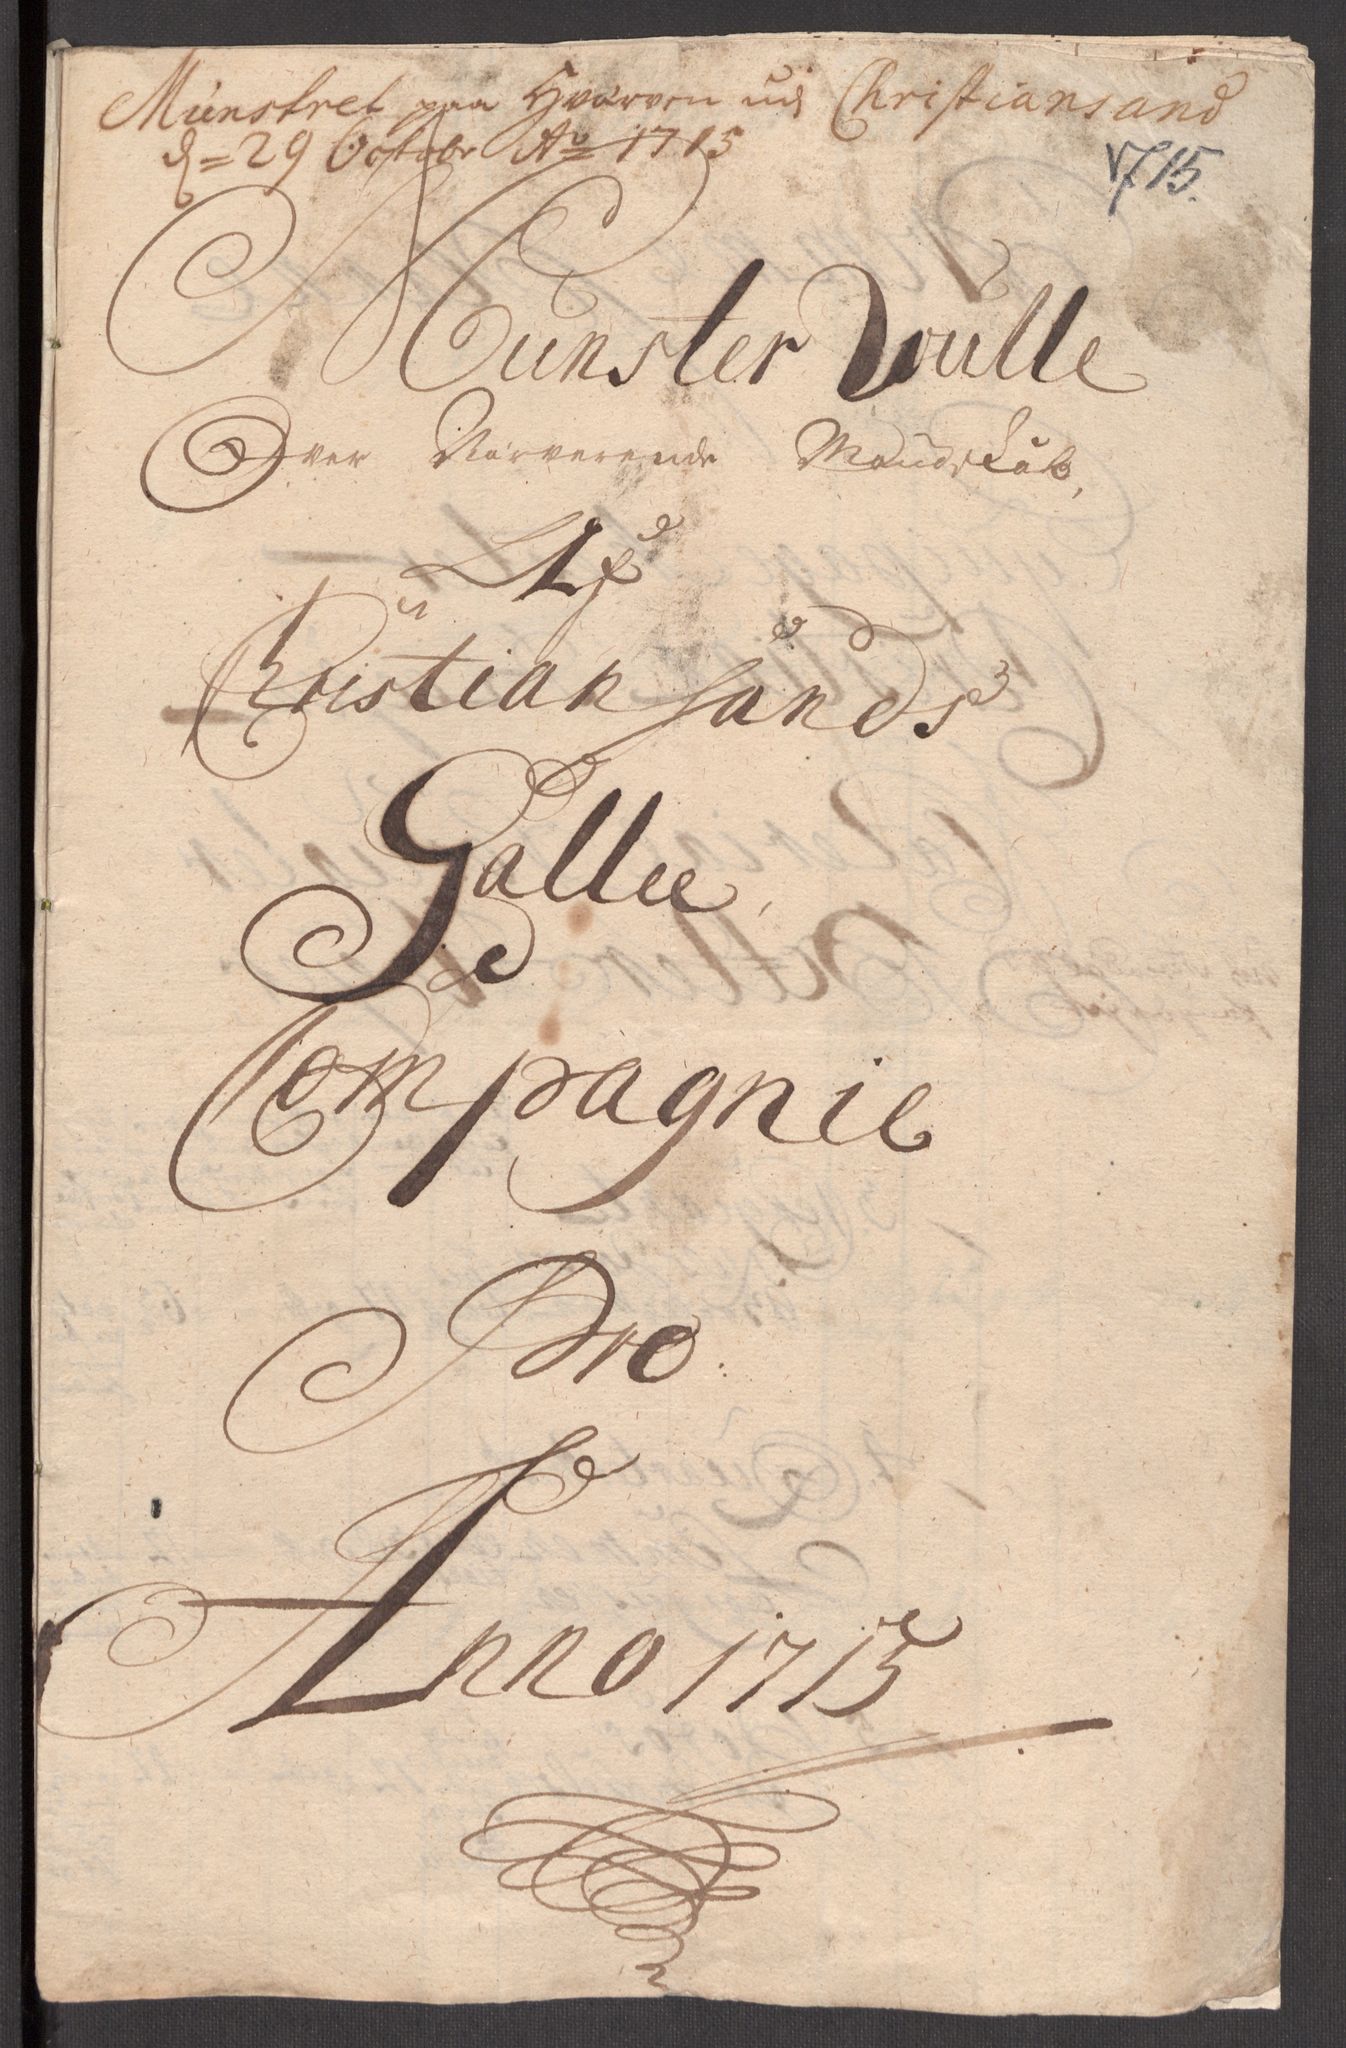 Münstret paa Hvarven udj Christiansand
d= 29 Octobr Ao= 1715
1715.
Munster Rulle
Over Nærverende Mandskab,
Af
Christiansands
Gallei
Compagnie
Pro
Anno 1715